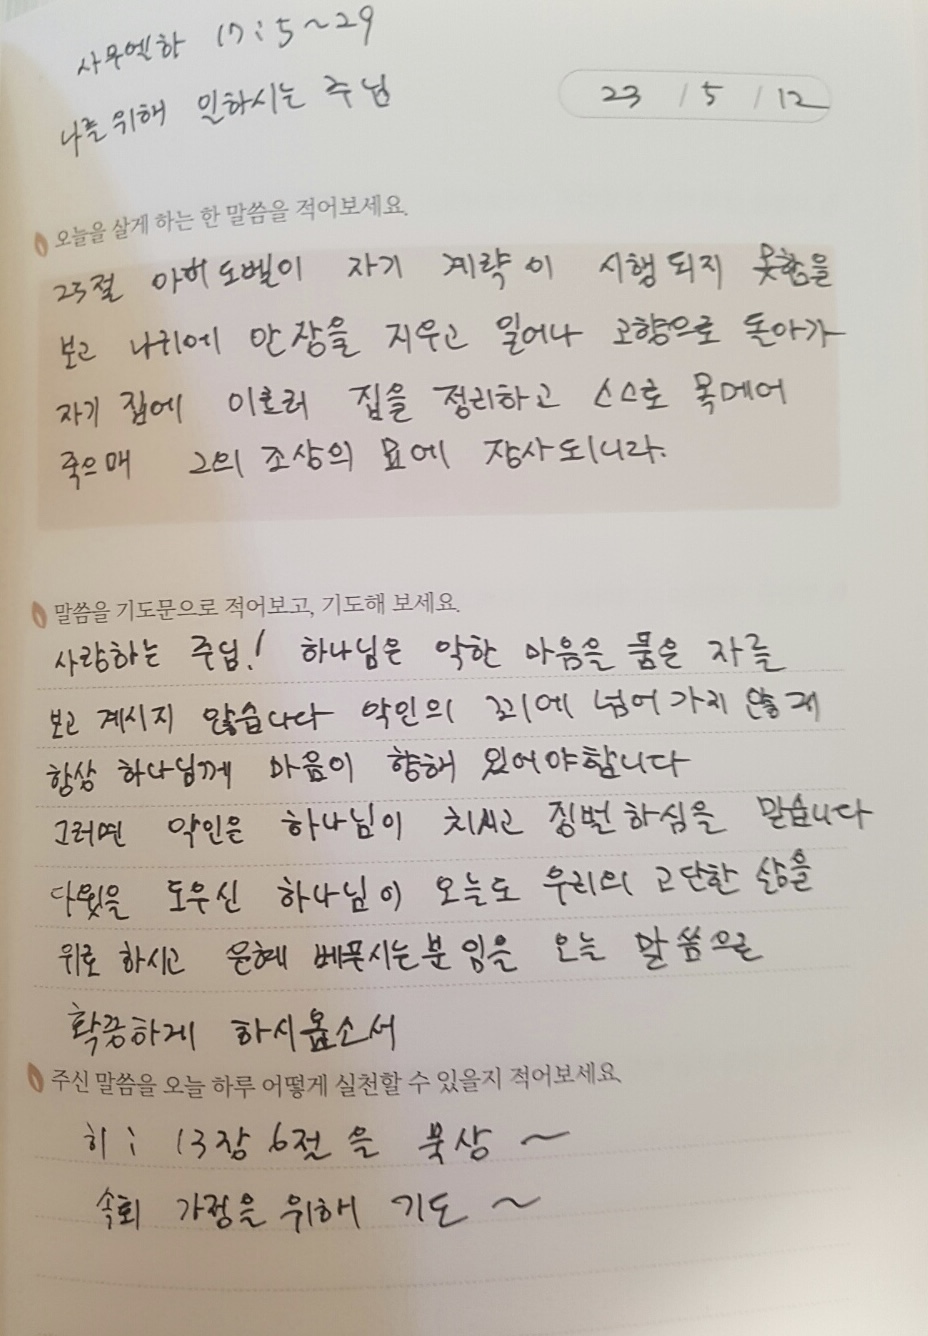 사무엘하 17:5~29
나를 위해 일하시는 주님
23 / 5 / 12
오늘을 살게 하는 한 말씀을 적어보세요.
23절 아히도벨이 자기 계략이 시행되지 못함을
보고 나귀에 안장을 지우고 일어나 고향으로 돌아가
자기 집에 이르러 집을 정리하고 스스로 목메어
죽으매 그의 조상의 묘에 장사되니라.
말씀을 기도문으로 적어보고, 기도해 보세요.
사랑하는 주님! 하나님은 악한 마음을 품은 자를
보고 계시지 않습니다 악인의 꾀에 넘어가지 않게
항상 하나님께 마음이 향해 있어야합니다
그러면 악인은 하나님이 치시고 징벌하심을 믿습니다
다윗을 도우신 하나님이 오늘도 우리의 고단한 삶을
위로 하시고 은혜 베푸시는분 임을 오늘 말씀으로
확증하게 하시옵소서
주신 말씀을 오늘 하루 어떻게 실천할 수 있을지 적어보세요.
히 ; 13장 6절을 묵상 ~
속회 가정을 위해 기도 ~